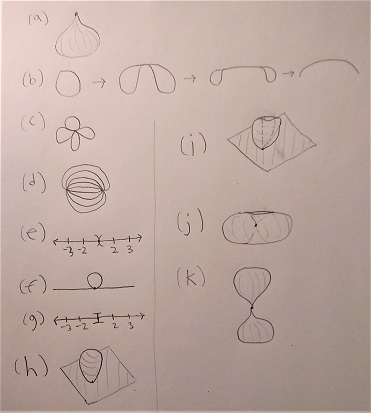 (a)
(b)
(c)
(d)
(e) -3 -2 2 3
(f)
(g) -3 -2 2 3
(h)
(i)
(j)
(k)